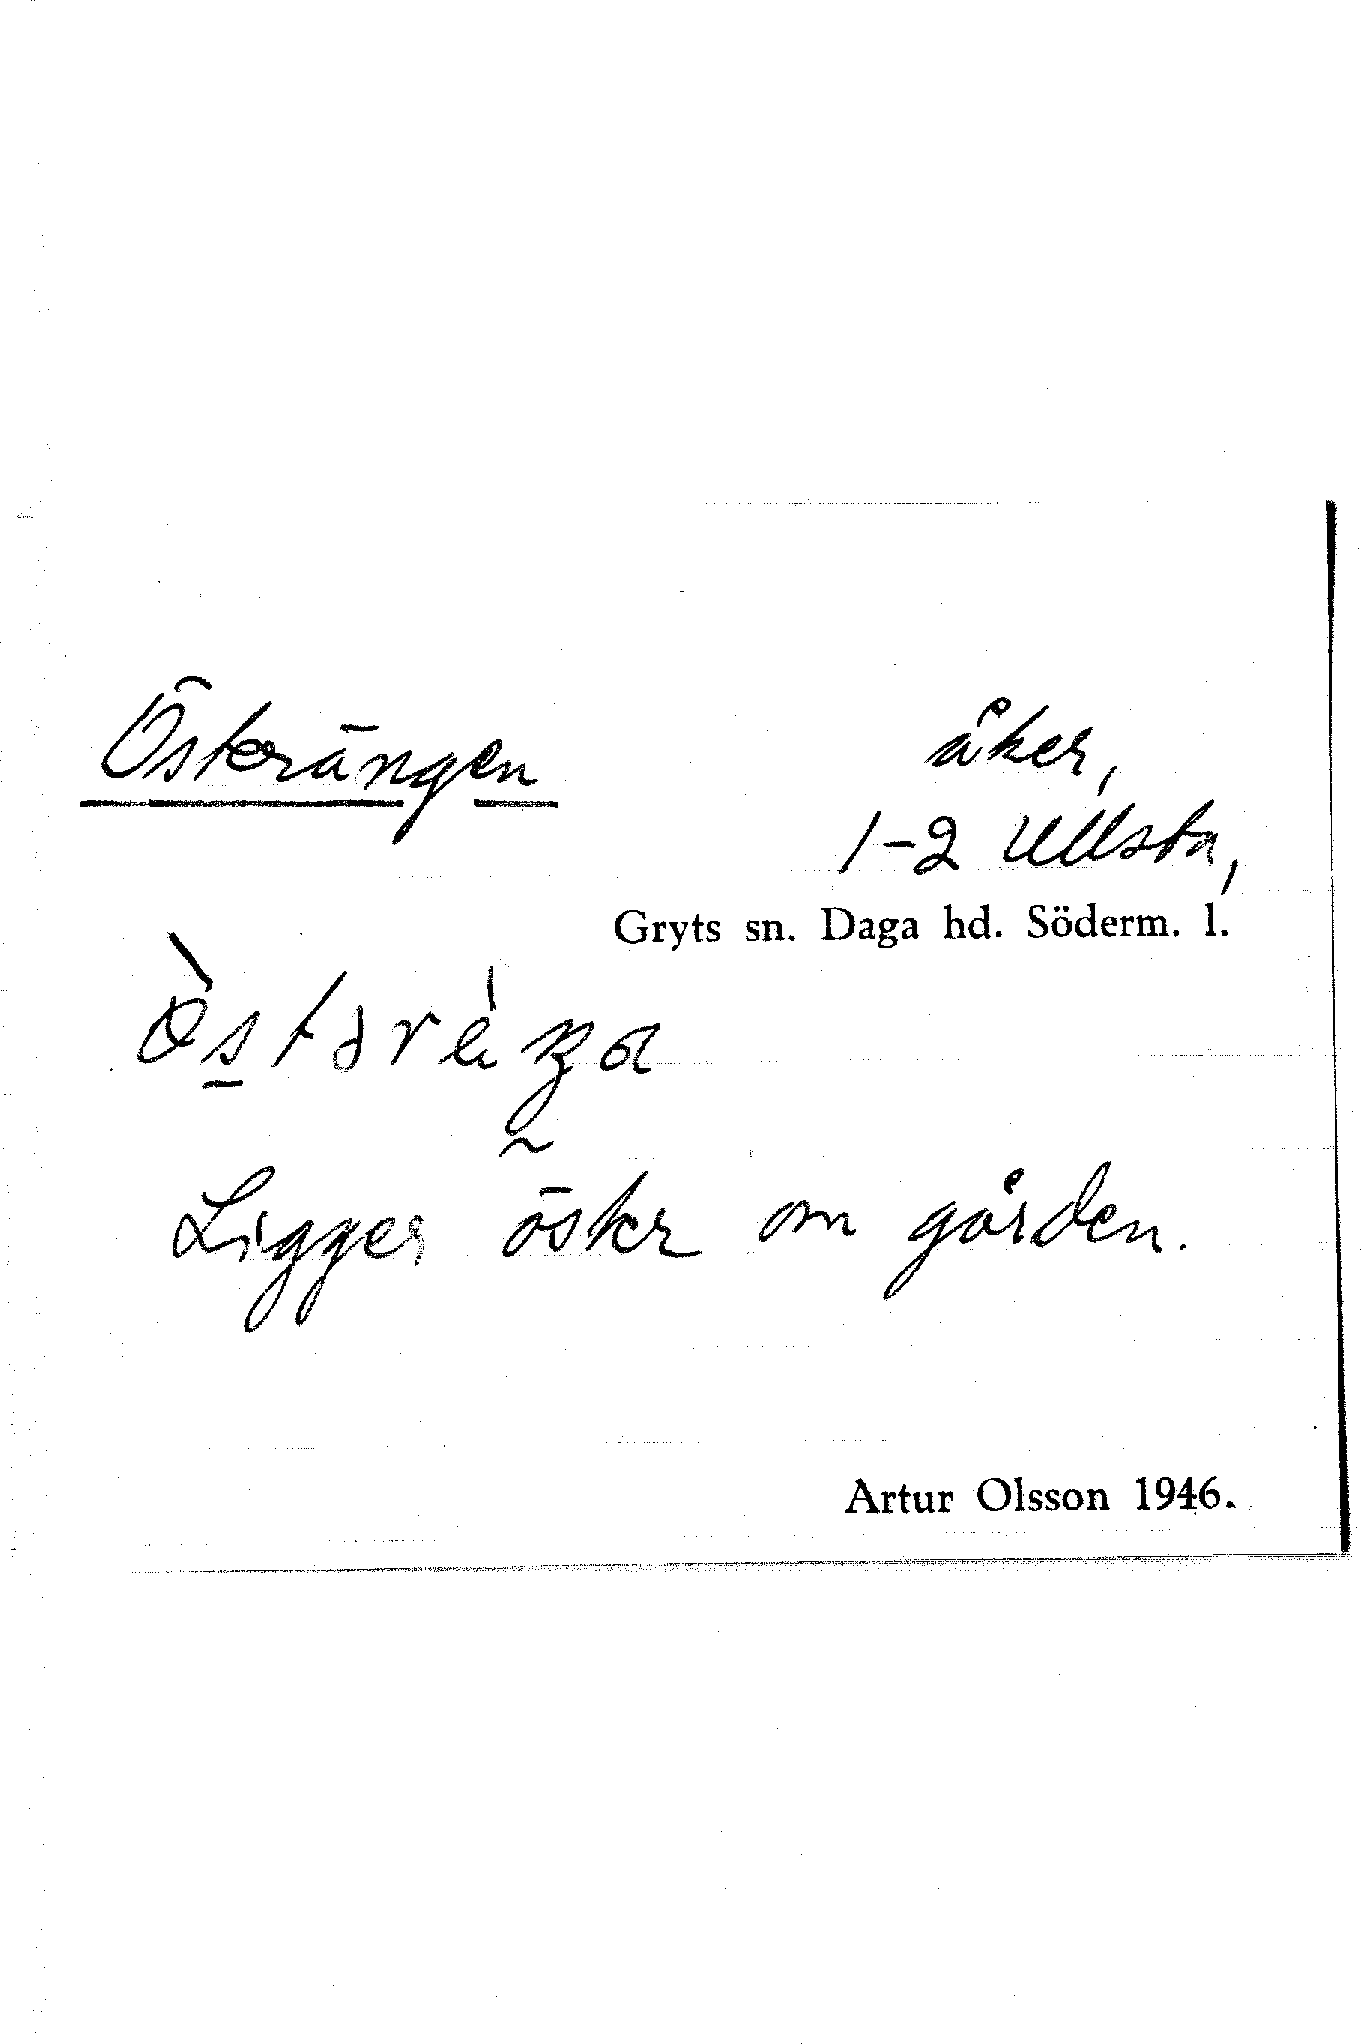 Österängen åker,
1-2 Ullsta,
Gryts sn. Daga hd. Söderm. l.
Ligger öster om gården.
Artur Olsson 1946.